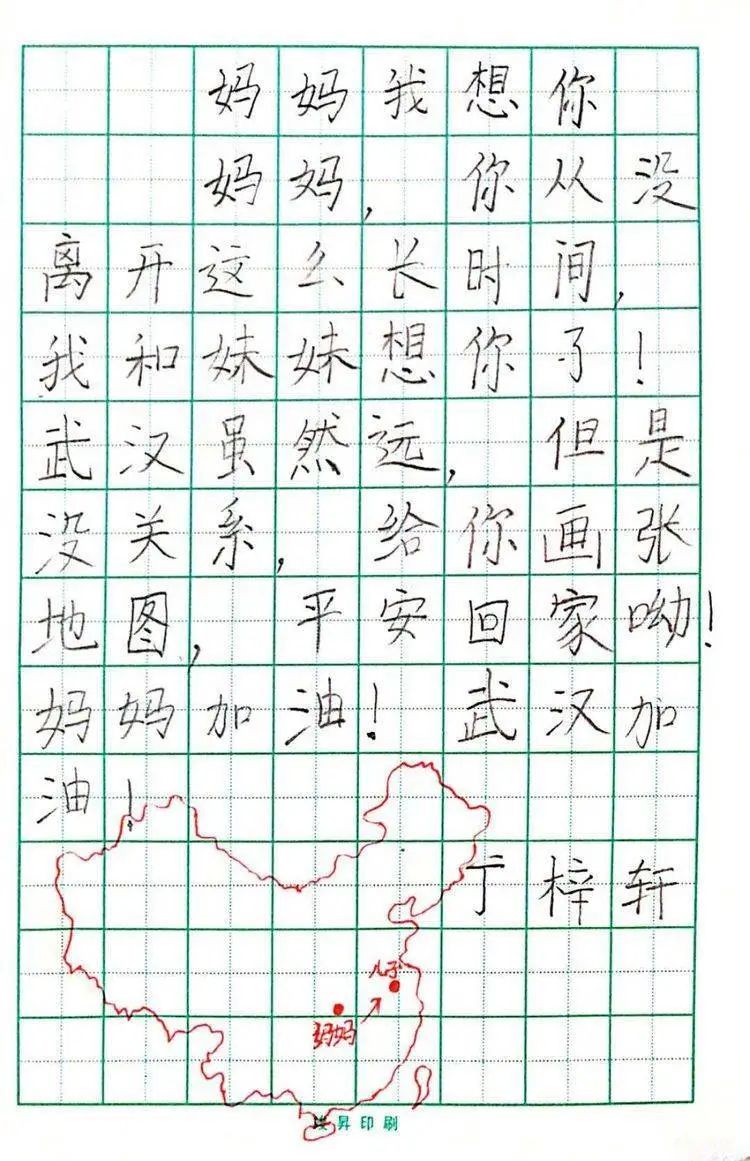 妈妈我想你
妈妈,你从没
离开这么长时间,
我和妹妹想你了!
武汉虽然远,但是
没关系,给你画张
地图,平安回家呦!
妈妈加油!武汉加
油!
丁梓轩
儿子
妈妈
昇印刷